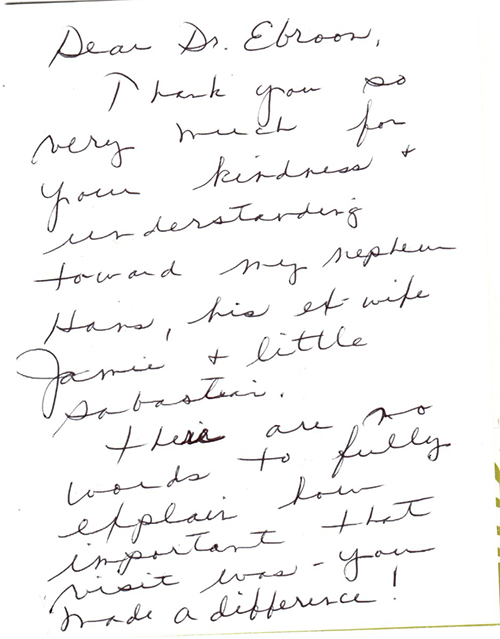 Dear Dr. Ebroon,
Thank you so
very much for
your kindness +
understanding
toward my nephew
Hans, his ex-wife
Jamie + little
Sabastein.
there are no
words to fully
explain how
important that
visit was - you
made a difference!